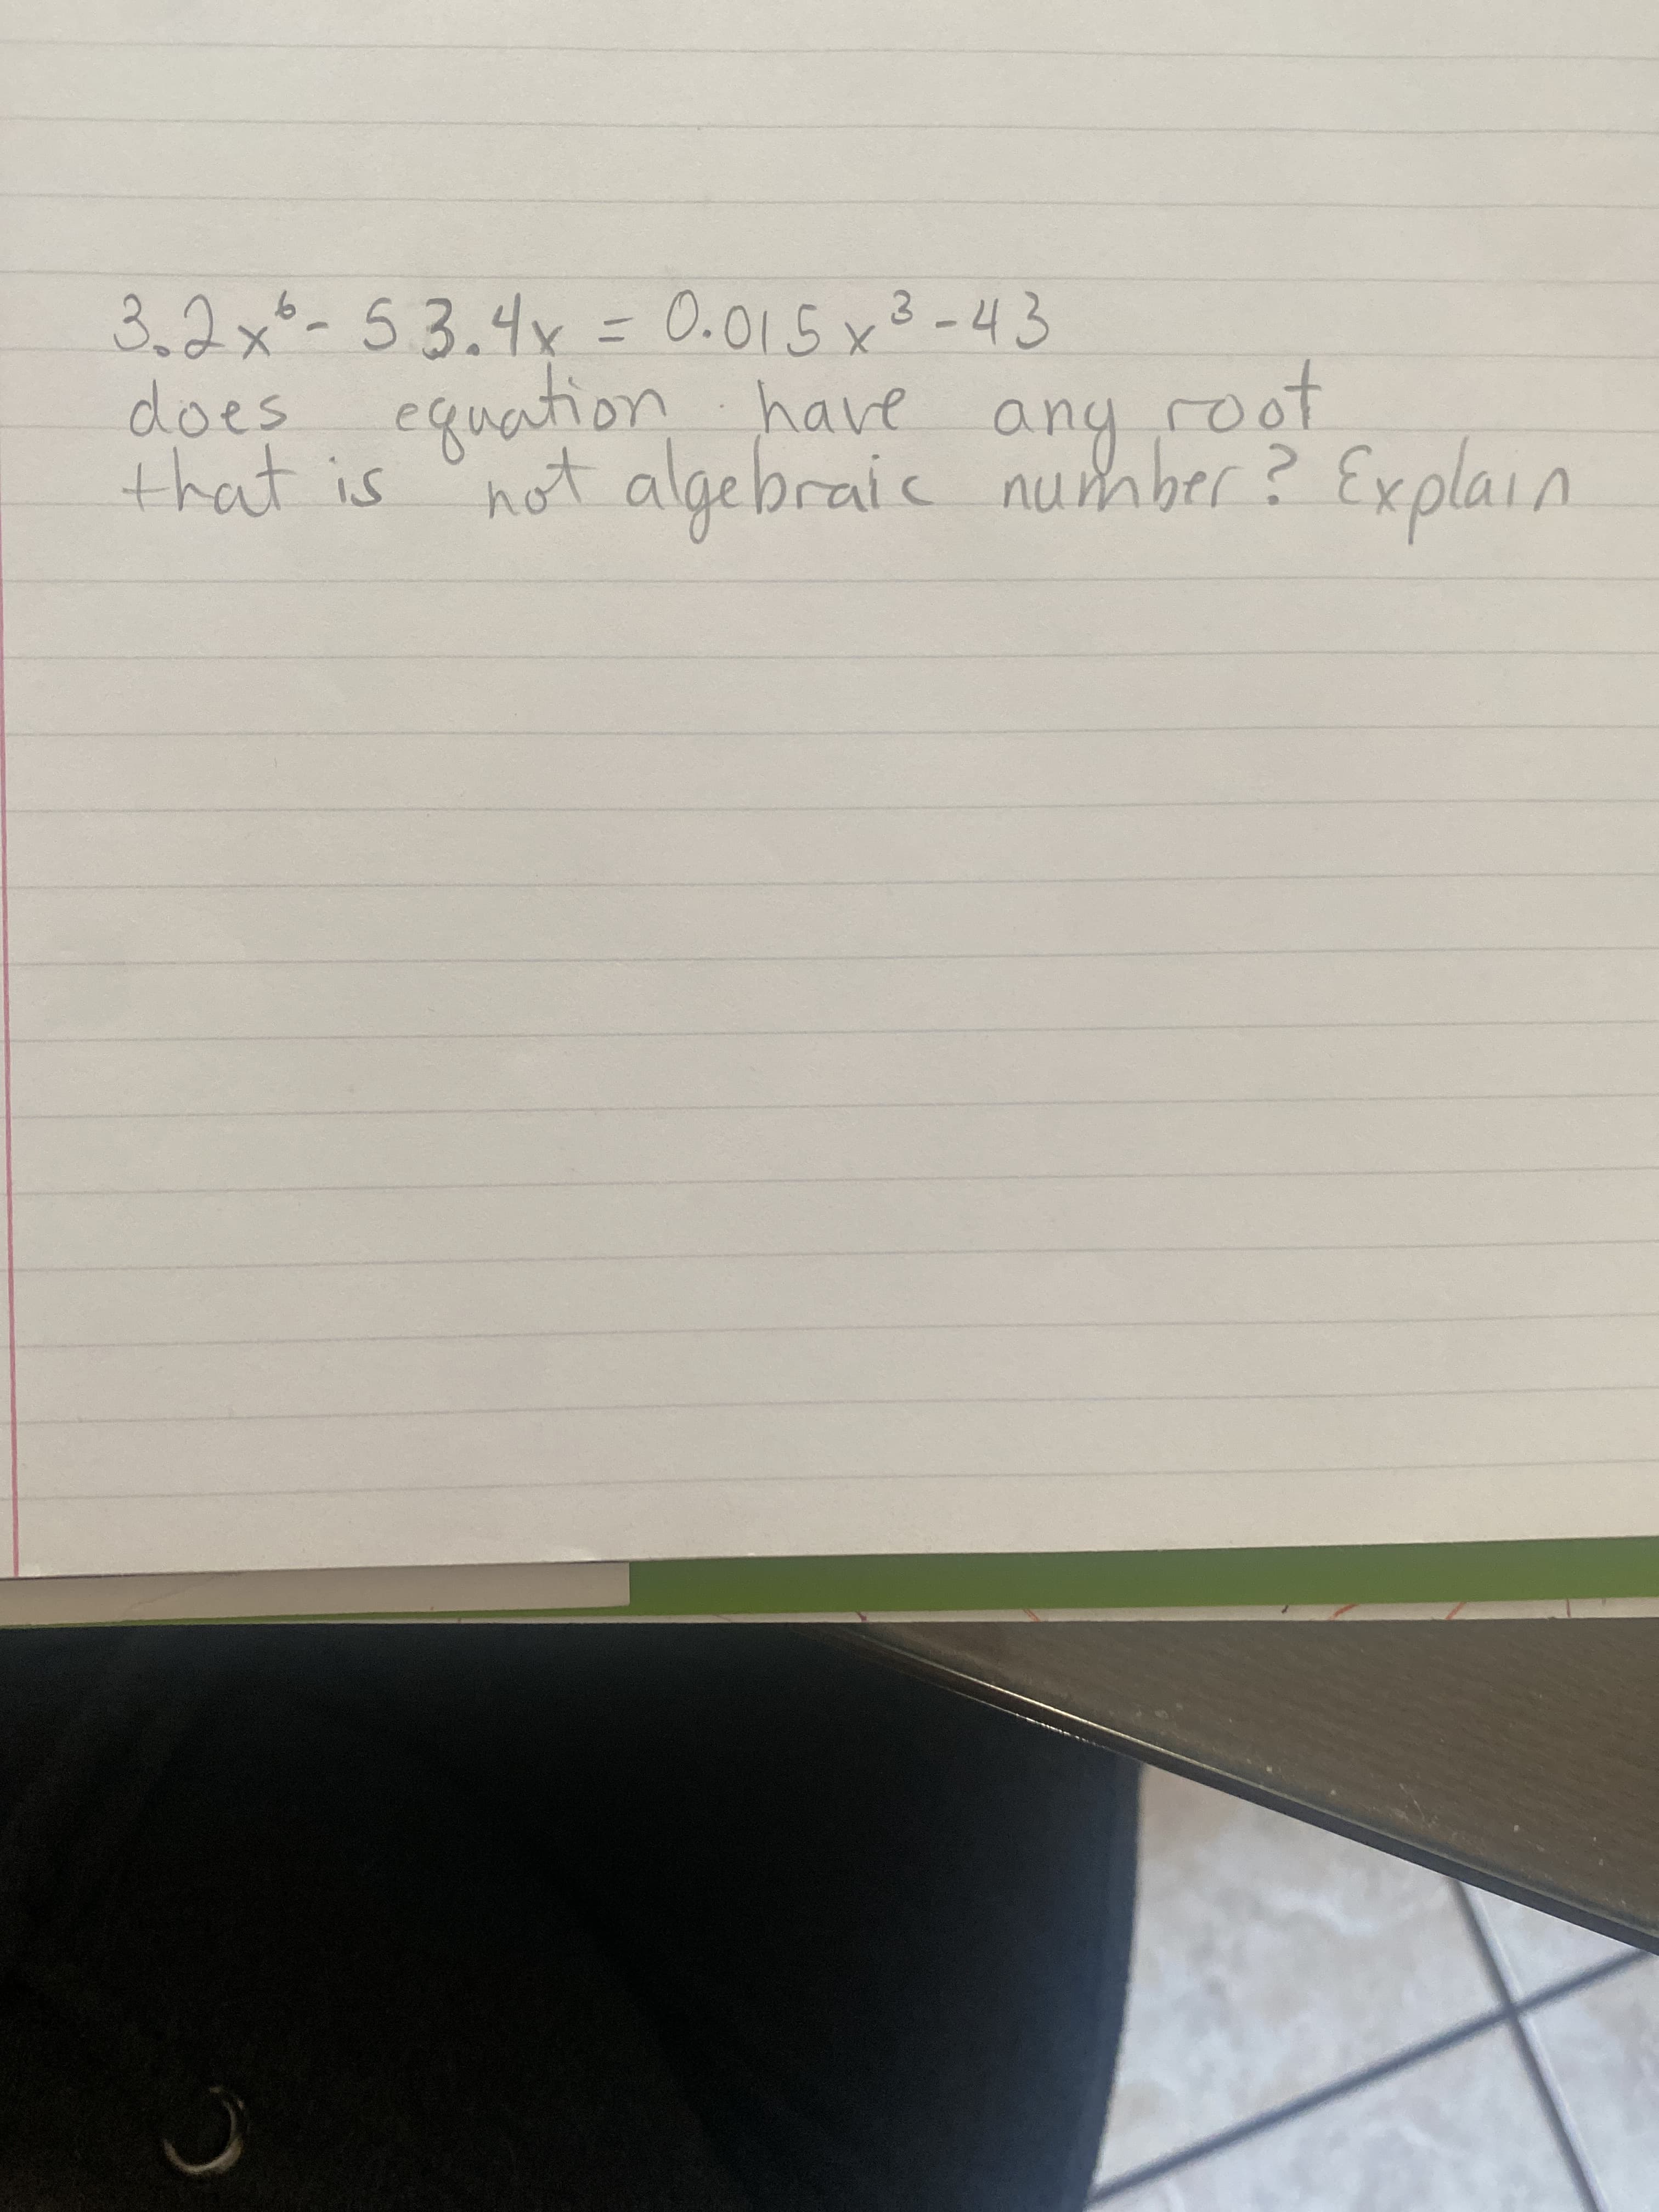 3.2x⁶- 53.4x = 0.015x³-43
does equation have any root
that is not algebraic number? Explain